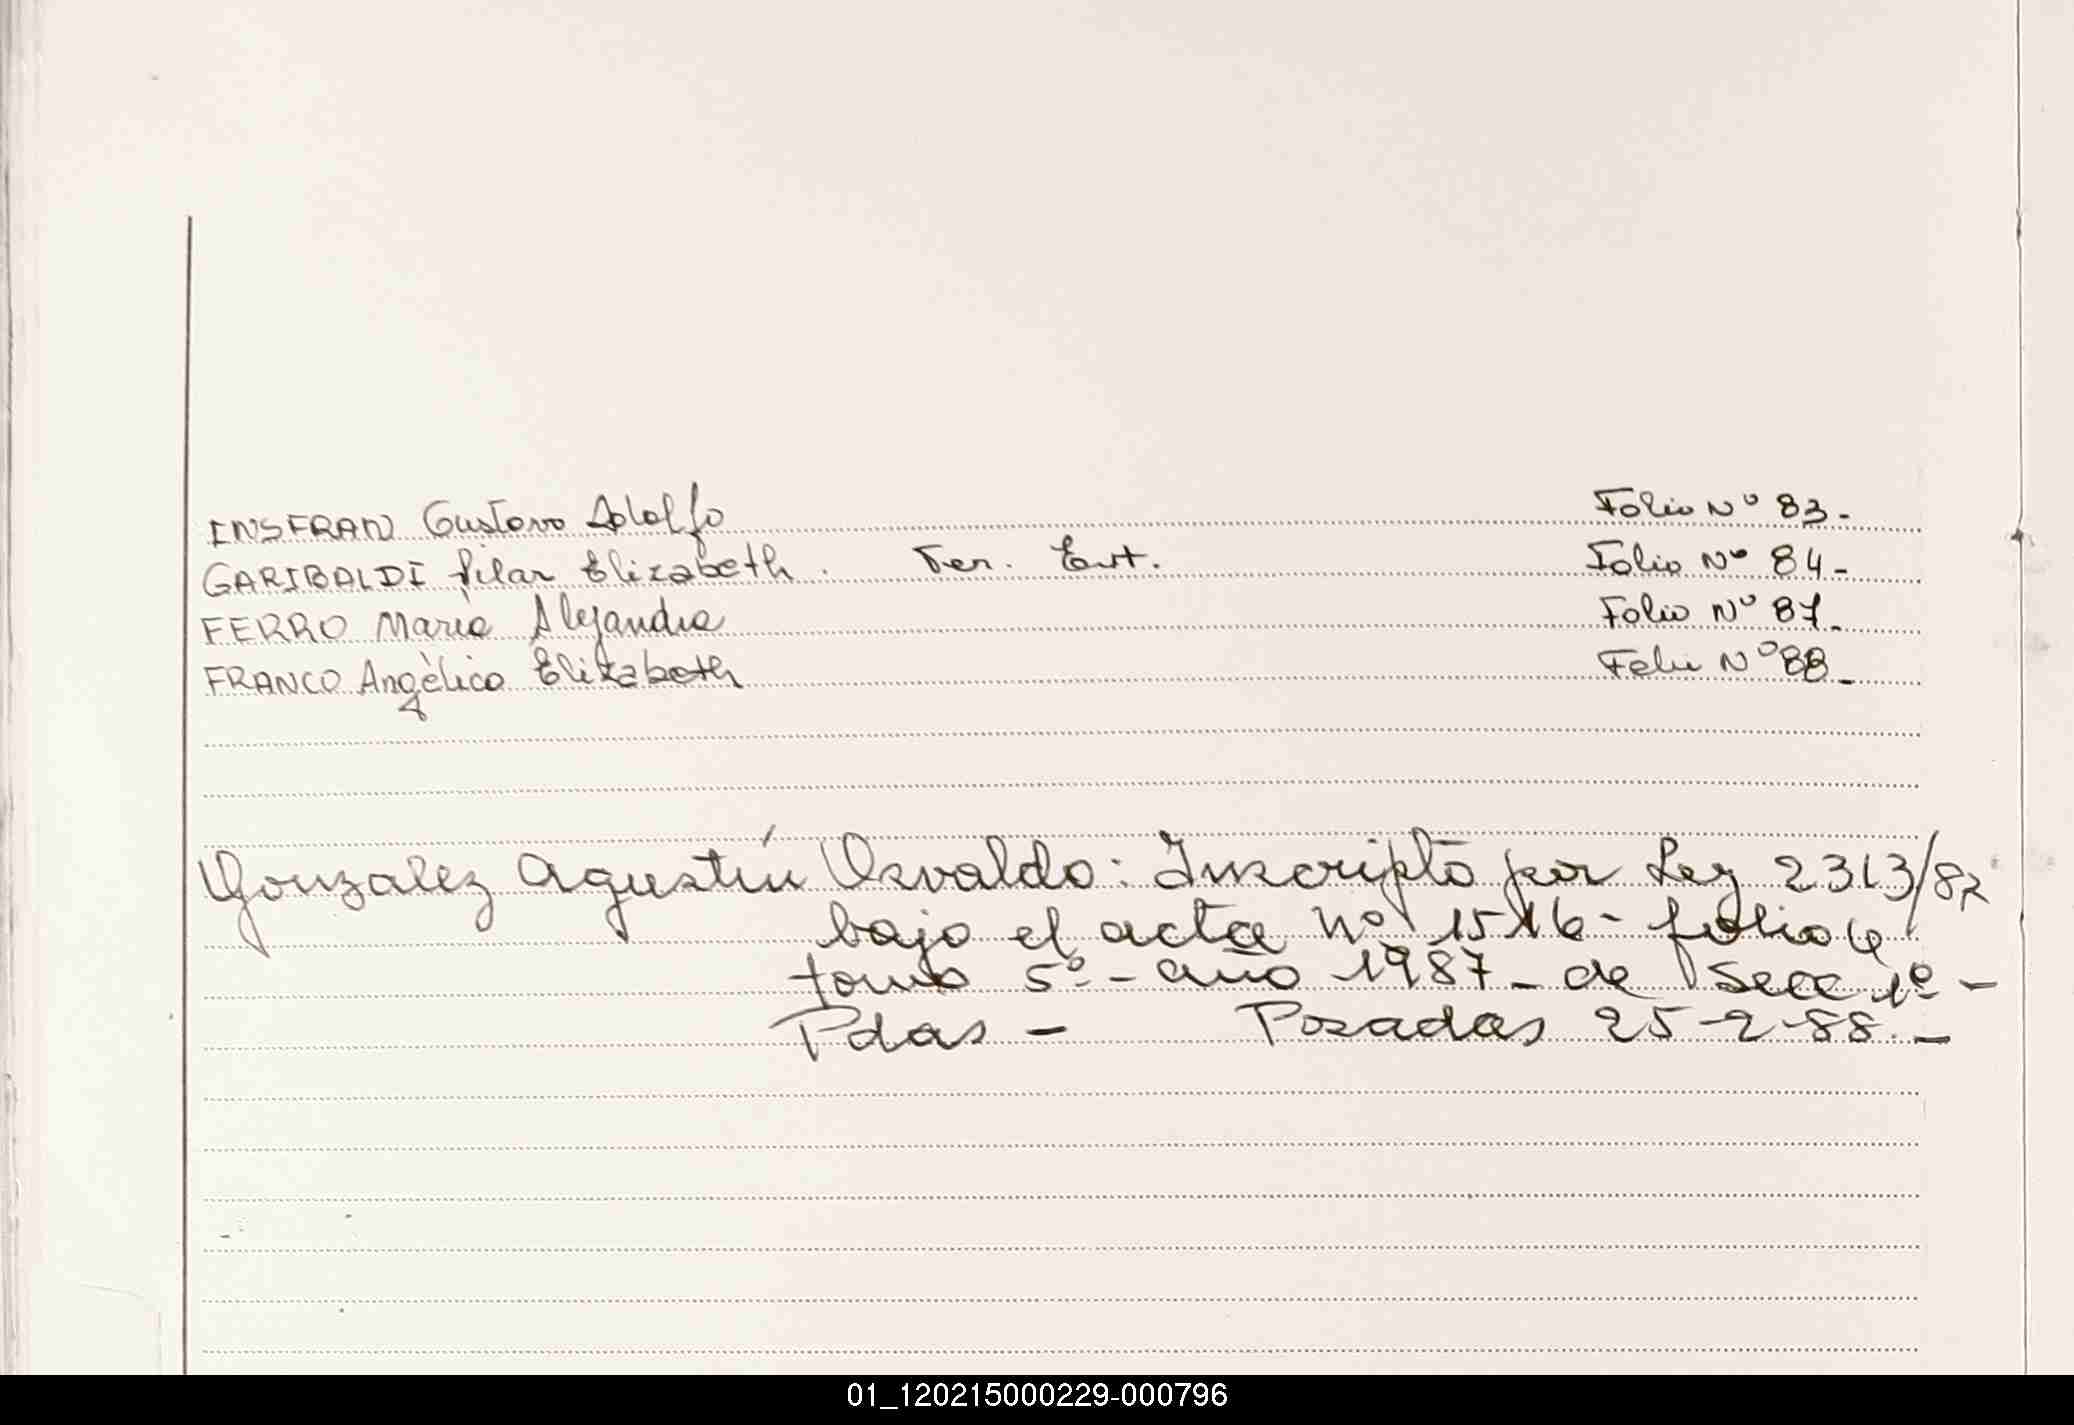 INSFRAN Gustavo Adolfo Folio Nº 83-
GARIBALDI Pilar Elizabeth. Folio Nº 84-
FERRO María Alejandra Folio Nº 87-
FRANCO Angèlica Elizabeth Folio Nº 88-
Gonzalez Agustín Osvaldo: Inscripto por Ley 2313/82
bajo el acta nº 1516- folio
tomo 5º- año 1987- de Secc 1º-
Pdas - Posadas 25-2-88.-
01_120215000229-000796